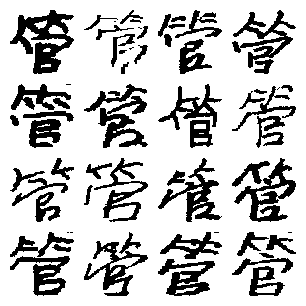 管管管管
管管管管
管管管管
管管管管